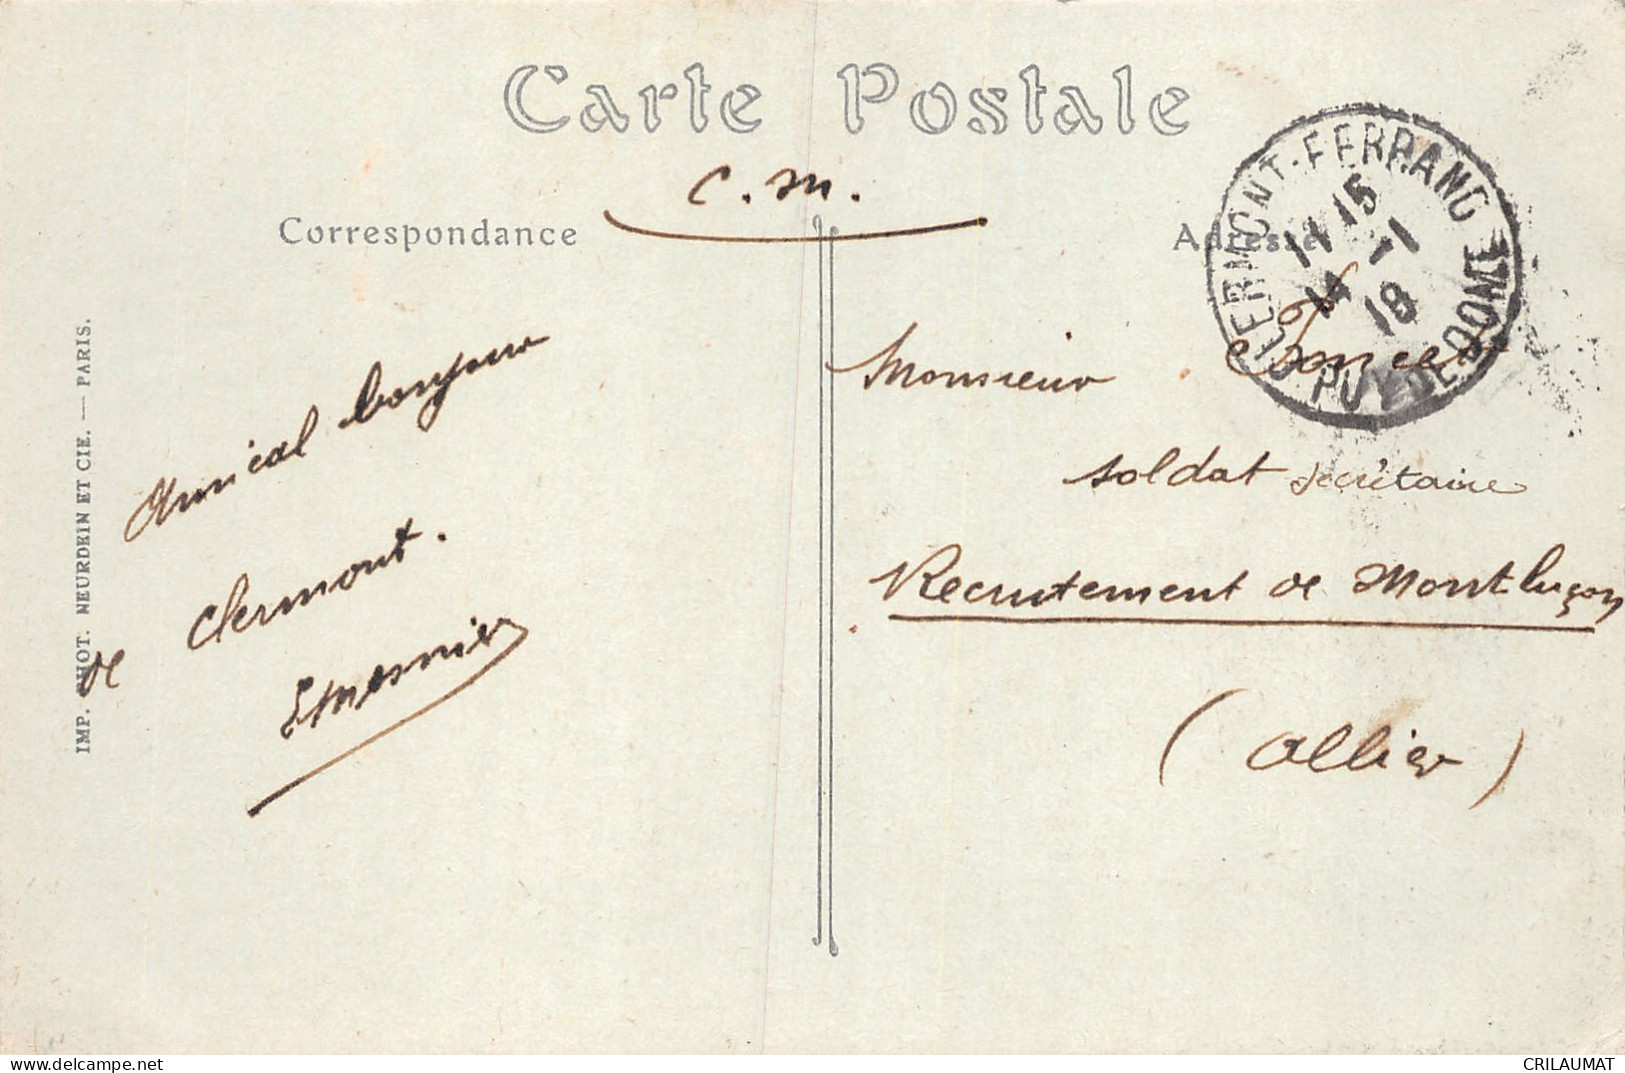 Carte Postale
C. M.
Correspondance
Adresse
CLERMONT-FERRAND
PUY DE DOME
11 15
14 -1
18
Amical bonjour
de Clermont.
EMesnier
Monsieur
soldat secrétaire
Recrutement de Montluçon
(Allier)
IMP. PHOT. NEURDEIN ET CIE. — PARIS.
https://www.delcampe.net
CRILAUMAT